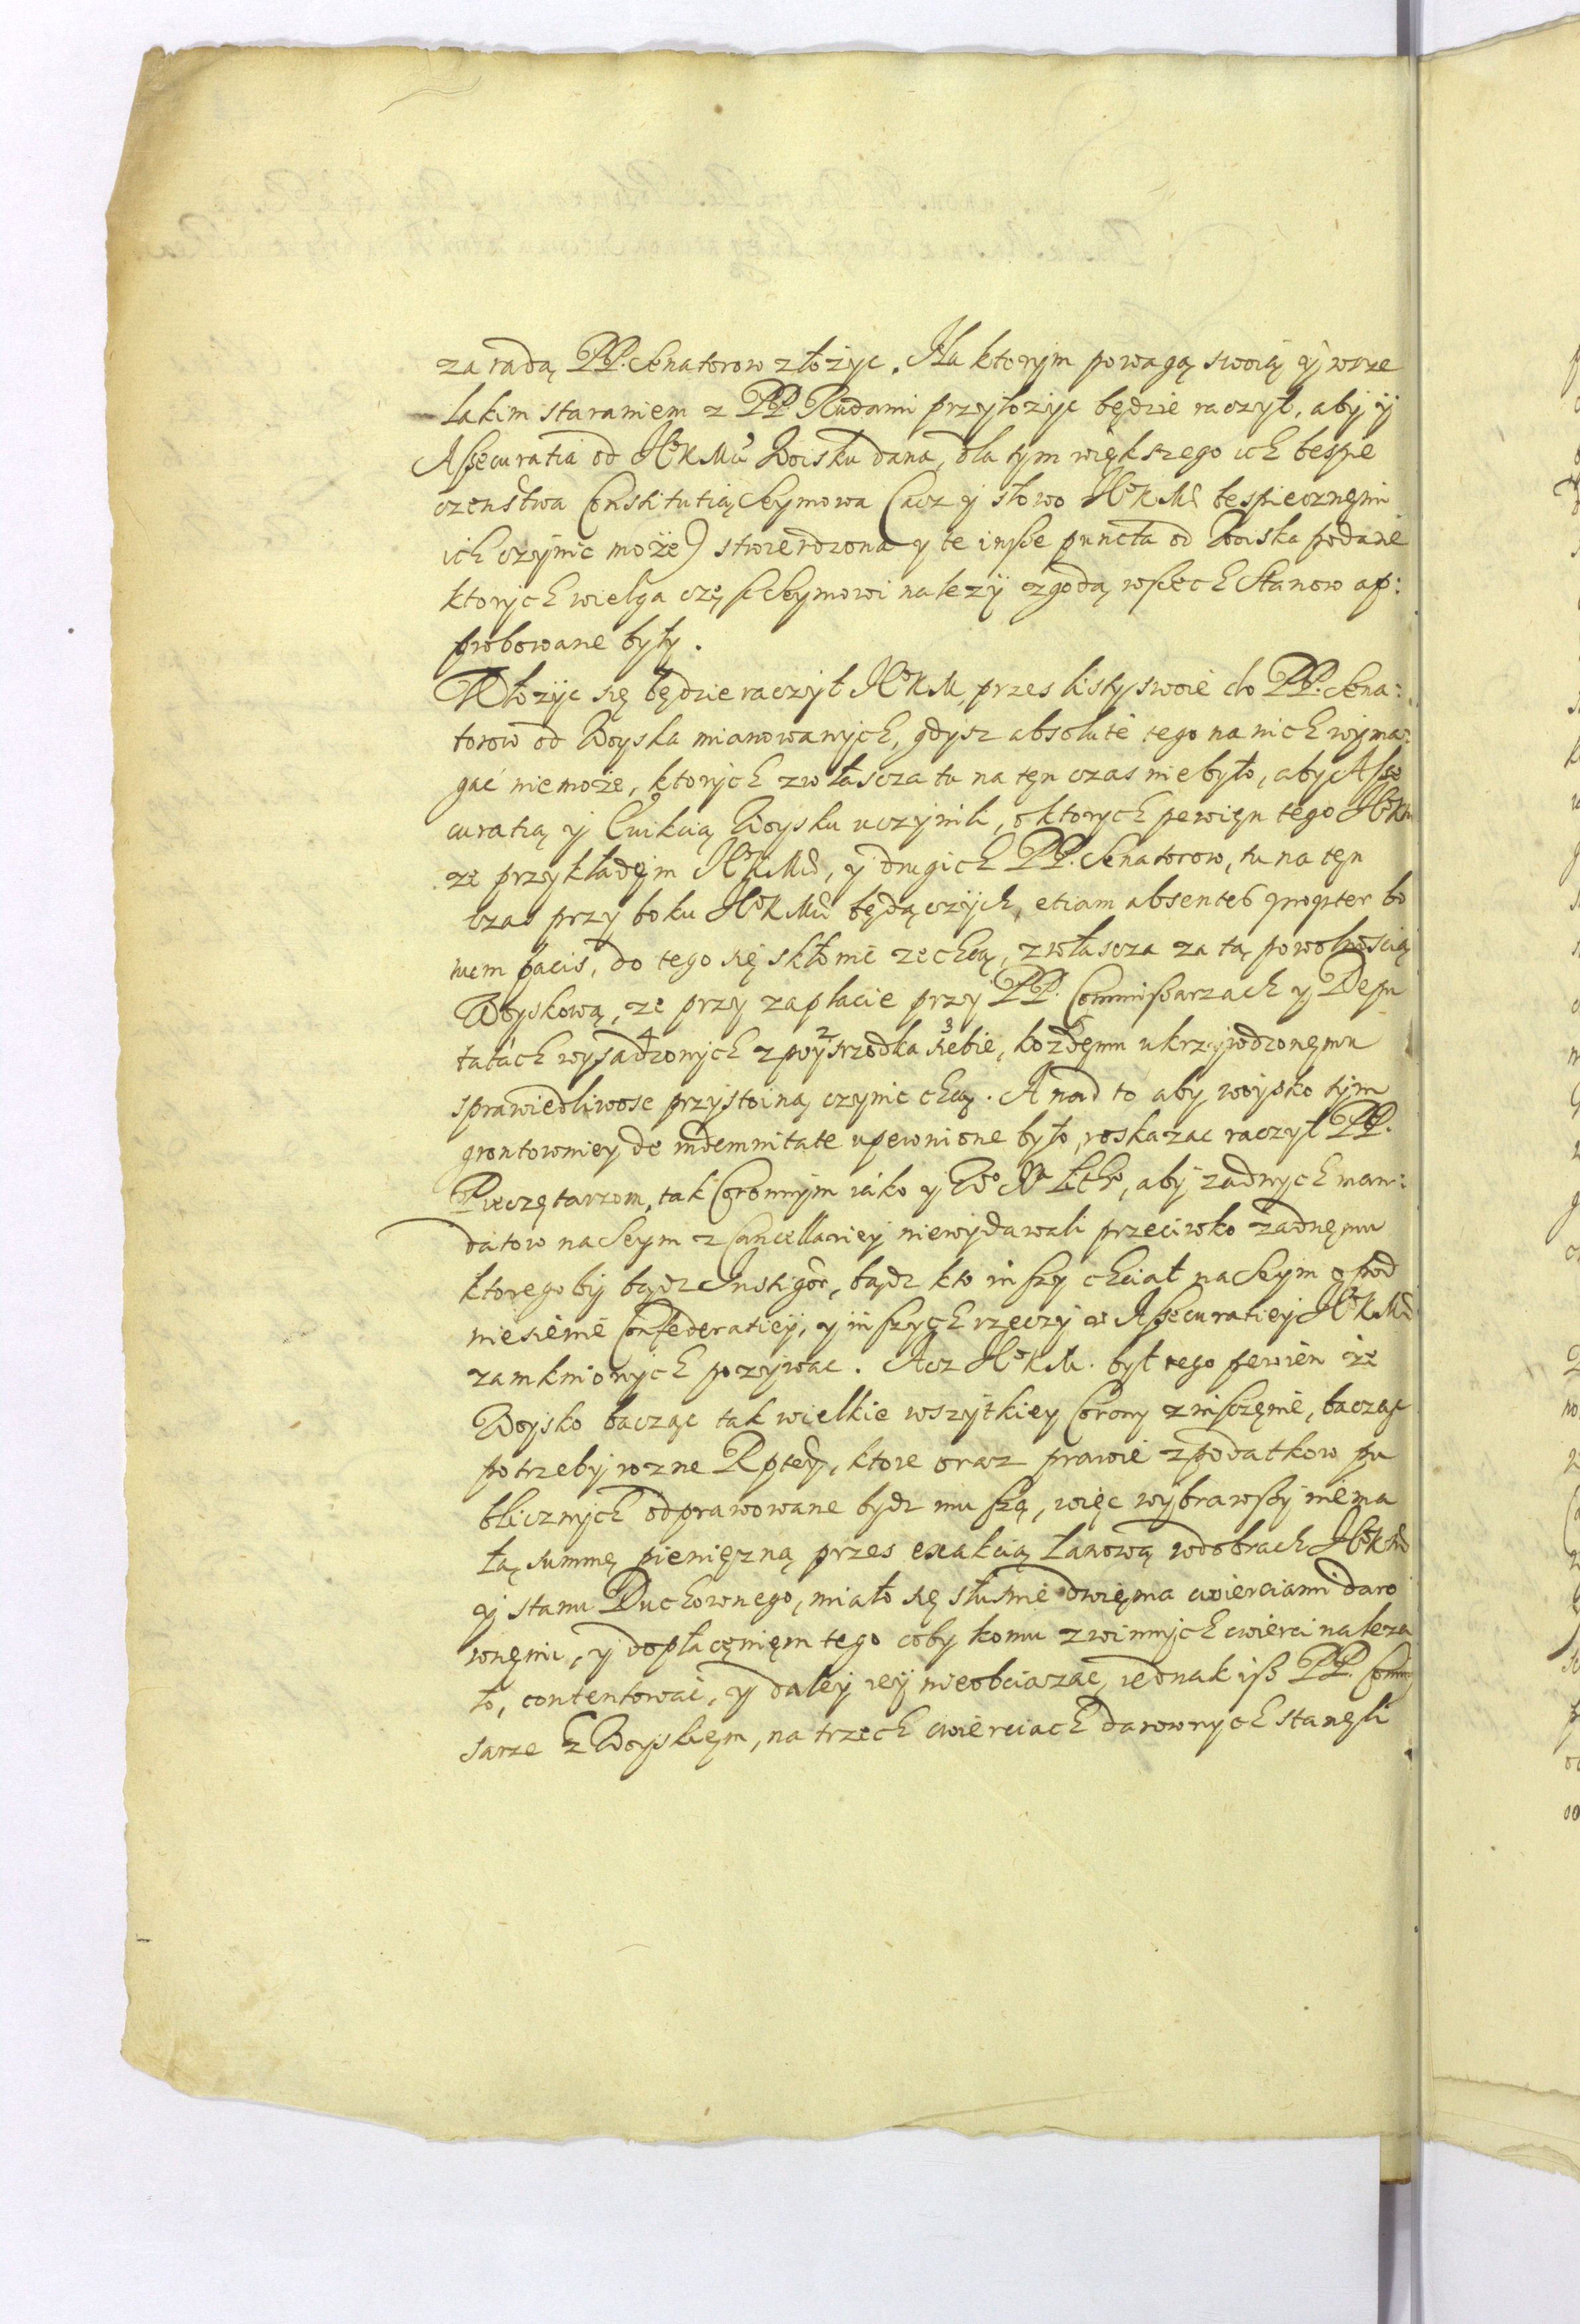 za radą PP. Senatorow złożyc. Na ktorym powagą swoią y wsze
lakim staraniem z PP. Radami przyłożyc będzie raczył, aby y
Assecuratia od JºKMci Woisku dana, dla tym większego ich bespie
czenstwa Constitutią Seymową (acz y słowo JºKMci bespiecznęmi
ich czynic może) stwierdzona y te insze puncta od Woiska podane
ktorych wielga częsc Seymowi należy zgodą wszech Stanow ap:
probowane były.
Włożyc się będzie raczył JºKM, przes listy swoie do PP. Sena:
torow od Woyska mianowanych, gdysz absolute tego na nich wyma:
gać niemoże, ktorych zwłaszcza tu na tęn czas niebyło, aby Asse
curatią y Ewikcią Woysku uczynili, o ktorych pewięn tego JºKM
że przykładęm JºKMci, y drugich PP. Senatorow, tu na tęn
czas przy boku JºKMci będączych, etiam absentes propter bo
num pacis, do tego się skłonić zechcą, zwłascza za tą powolnoscią
Woyskową, że przy zapłacie przy PP. Commissarzach y Depu
tatach wysadzonych z pośrzodka siebie, każdęmu ukrzywdzonęmu
sprawiedliwosc przystoiną czynic chcą. A nad to aby woysko tym
grontowniey de indemnitate upewnione było, roskazac raczył PP.
Pieczętarzom, tak Coronnym iáko y Wº Xª Lithº, aby żadnych man:
datow na Seym z Cancellariey niewydawali przeciwko żadnęmu
ktorego by bądz Instigor, bądz kto inszy chciał na Seym o pod
niesienie Confederatiey, y inszych rzeczy w Assecuratiey JºKMci
zamknionych pozywac. Acz JºKM. był tego pewien że
Woysko bacząc tak wielkie wszytkiey Corony zniszczęnie, bacząc
potrzeby rozne Rptey, ktore oraz prawie z podatkow pu
blicznych odprawowane bydz muszą, więc wybrawszy niema
łą summę pieniężną przes exakcią łanową w dobrach JºKMci
y stanu Duchownego, miało się słusznie dwięma cwierciami daro
wnęmi, y dopłacęnięm tego coby komu z winnych cwierci należa
ło, contentować, y daley iey nieobciążać, iednak isz PP. Commis
sarze z Woyskięm, na trzech cwierciach darownych stanęli